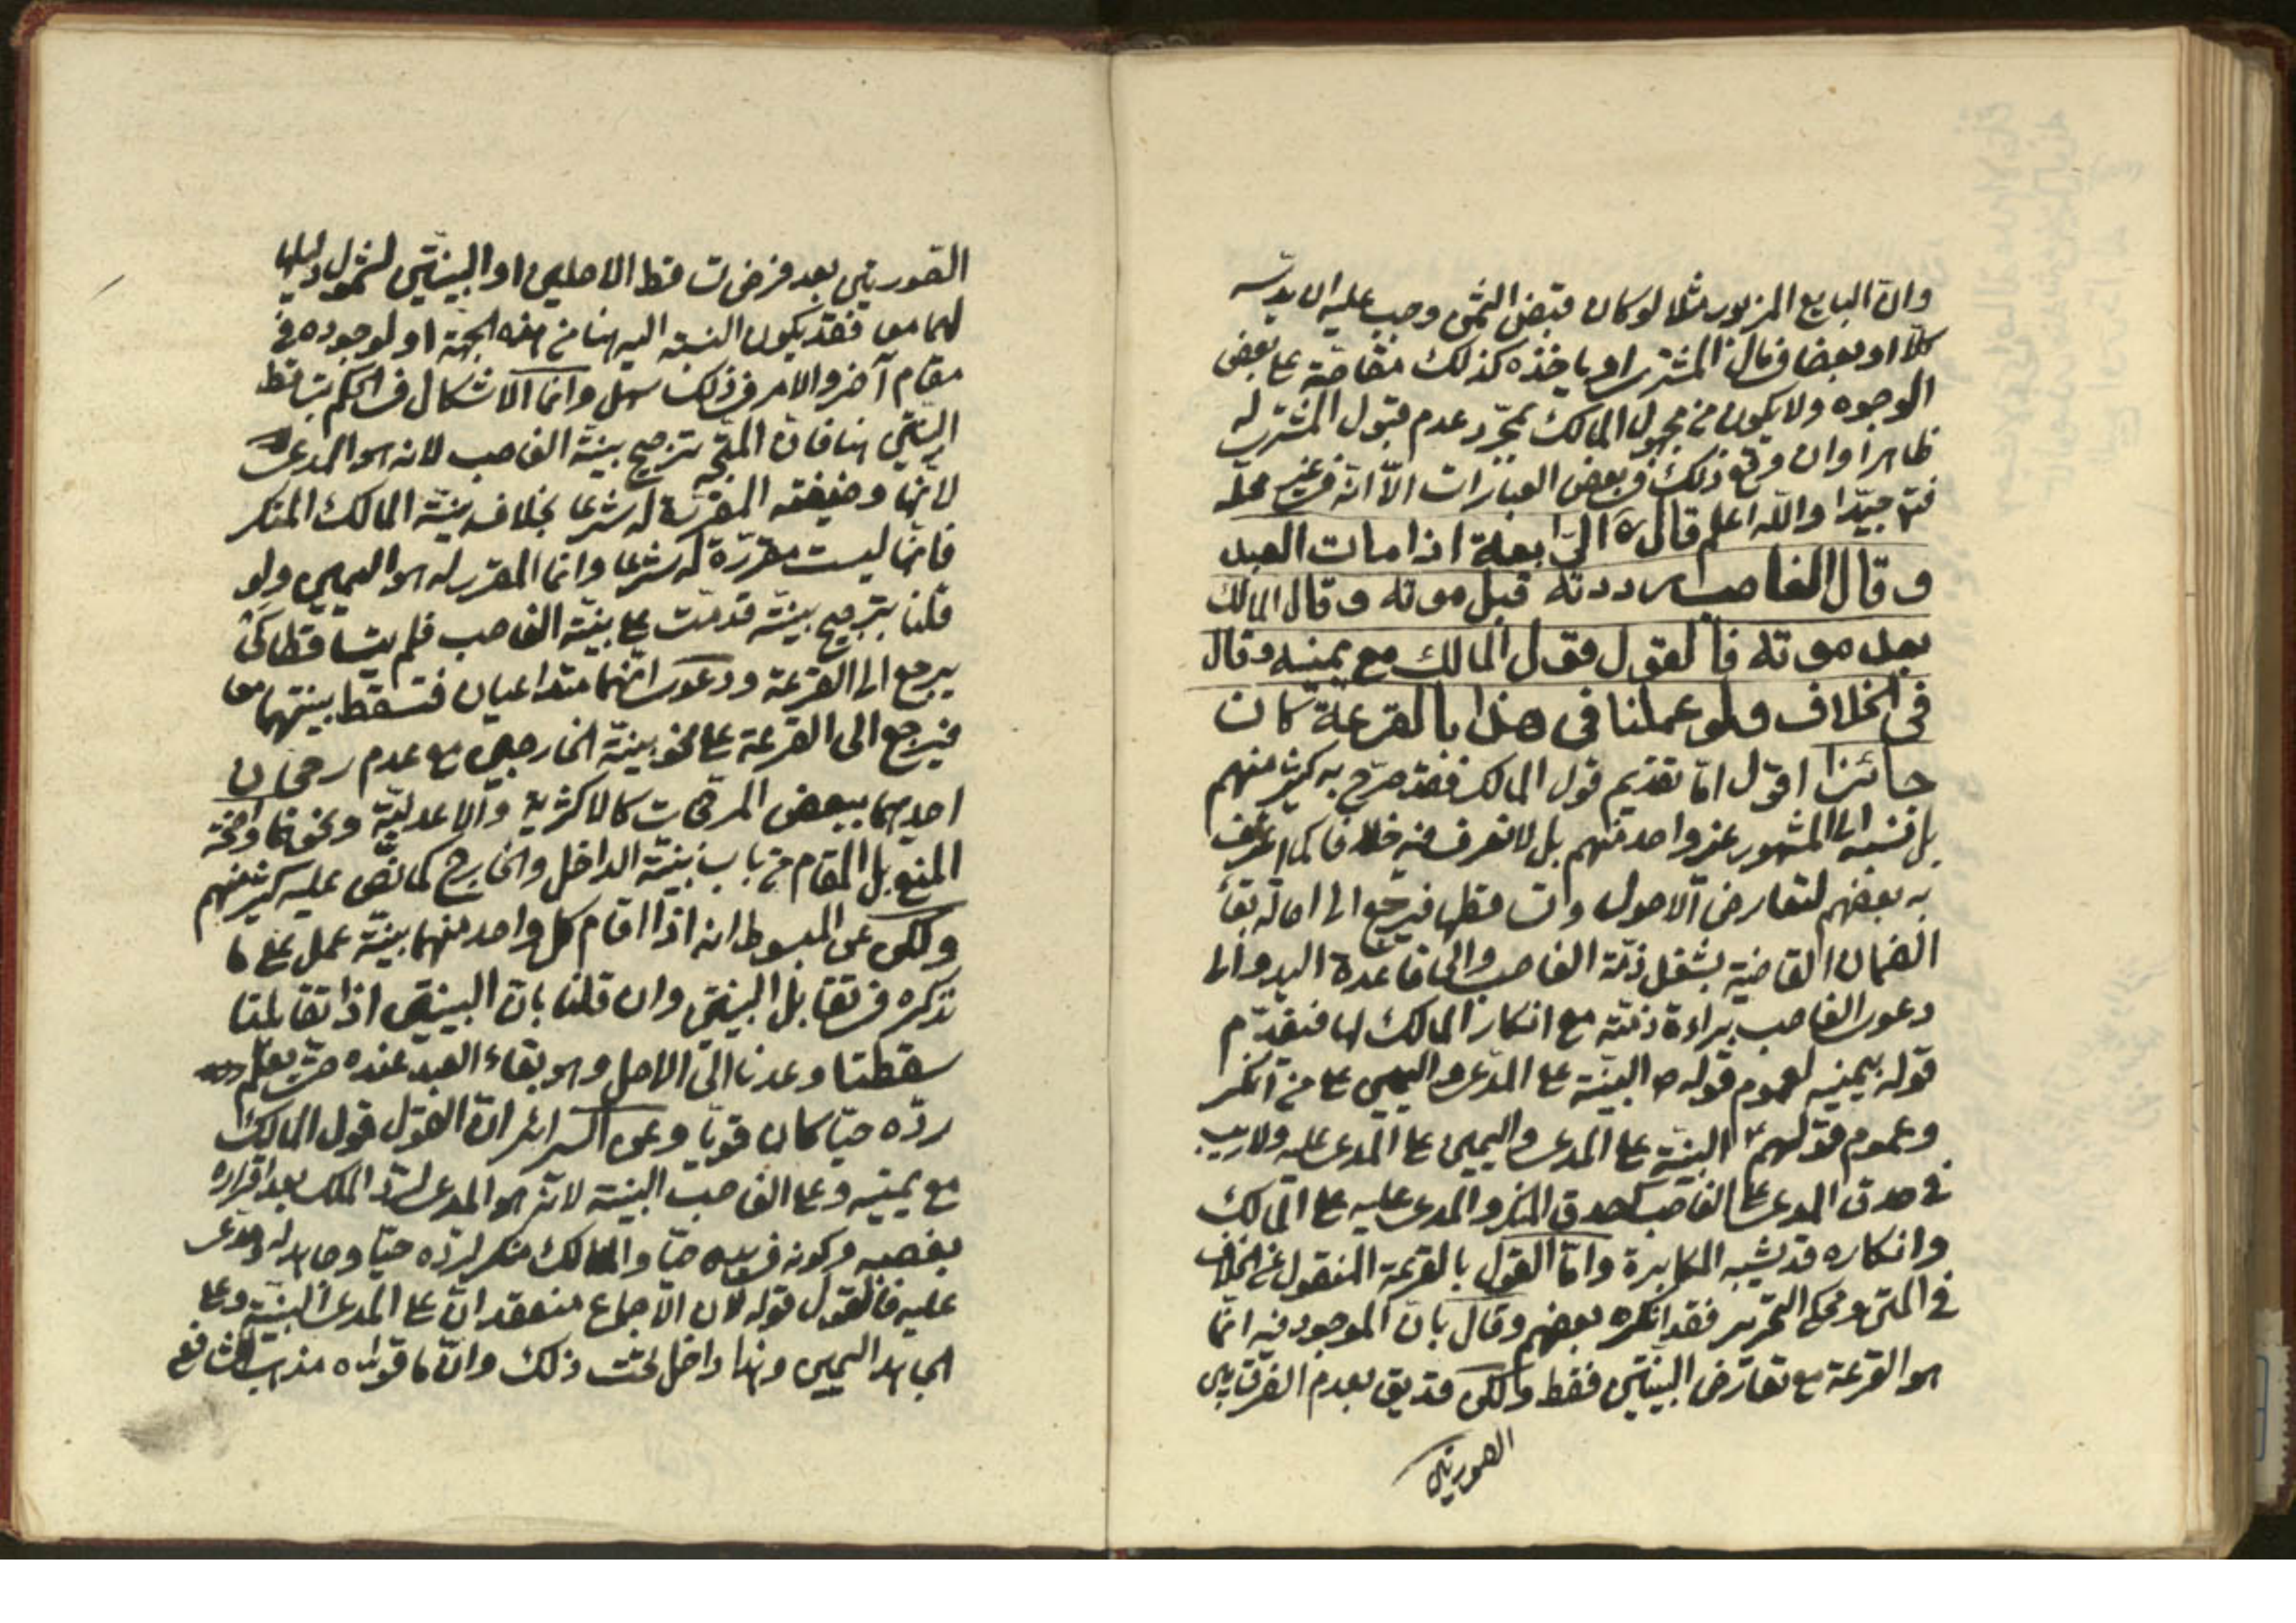 وانّ البايع المزبور مثلا لو كان قبض الثمن وجب عليه ان يدسّه
كلّا او بعضا في مال المشتري او يأخذه كذلك مقاصّة على بعض
الوجوه ولا يكون من مجهول المالك بمجرّد عدم قبول المشتري له
ظاهرا وان وقع ذلك في بعض العبارات الّا انّه في غير محلّه
فتنبّه جيّدا واللّه اعلم قال ره الرّابعة اذا مات العبد
وقال الغاصب رددته قبل موته وقال المالك
بعد موته فالقول قول المالك مع يمينه وقال
في الخلاف ولو عملنا في هذا بالقرعة كان
جائزا اقول امّا تقديم قول المالك فقد صرّح به كثير منهم
بل نسبه الى المشهور غير واحد منهم بل لا نعرف فيه خلافا كما اعترف
به بعضهم لتعارض الاصول وتساقطها فيرجع الى اصالة بقاء
الضمان القاضية بشغل ذمّة الغاصب والى قاعدة اليد والى
دعوى الغاصب براءة ذمّته مع انكار المالك لها فيقدّم
قوله بيمينه لعموم قوله ص البيّنة على المدّعي واليمين على من انكر
وعموم قولهم ع البيّنة على المدعي واليمين على المدعى عليه ولا ريب
في صدق المدعي على الغاصب كصدق المنكر والمدعى عليه على المالك
وانكاره قد يشبه المكابرة وامّا القول بالقرعة المنقول عن الخلاف
في المتن ومحكي التحرير فقد انكره بعضهم وقال بانّ الموجود فيه انّما
هو القرعة مع تعارض البيّنتين فقط ولكن قد يق بعدم الفرق بين
الصورتين
الصورتين بعد فرض تساقط الاصلين او البيّنتين لشمول دليلها
لهما معا فقد يكون النسبة اليه هنا من هذه الجهة او لوجوده في
مقام آخر والامر في ذلك سهل وانما الاشكال في الحكم بتساقط
البيّنتين هنا فانّ المتّجه ترجيح بيّنة الغاصب لانه هو المدعي
لانّها وضيفته المقرّرة له شرعا بخلاف بيّنة المالك المنكر
فانّها ليست مقرّرة له شرعا وانما المقرر له هو اليمين ولو
قلنا بترجيح بيّنة قدمت على بيّنة الغاصب فلم يتساقطا كي
يرجع الى القرعة ودعوى انّهما متداعيان فتسقط بيّنتهما معا
فيرجع الى القرعة على نحو بينة الخارجين مع عدم رجحان
احديهما ببعض المرجّحات كالاكثرية والاعدليّة ونحوهما واضحة
المنع بل المقام من باب بيّنة الداخل والخارج كما نصّ عليه كثير منهم
ولكن عن المبسوط انه اذا اقام كل واحد منهما بيّنة عمل على ما
نذكره في تقابل البيّنتين وان قلنا بانّ البينتين اذا تقابلتا
سقطتا وعدنا الى الاصل وهو بقاء العبد عنده حتى يعلم
ردّه حيّا كان قويّا وعن السرائر انّ القول قول المالك
مع يمينه وعلى الغاصب البيّنة لانّه هو المدعي لردّ الملك بعد اقراره
بغصبه وكونه في يده حيّا والمالك منكر لردّه حيّا وجاحد له ومدعى
عليه فالقول قوله لان الاجماع منعقد انّ على المدعي البيّنة وعلى
الجاحد اليمين وهذا داخل تحت ذلك وانّ ما قوّاه مذهب الشافعي